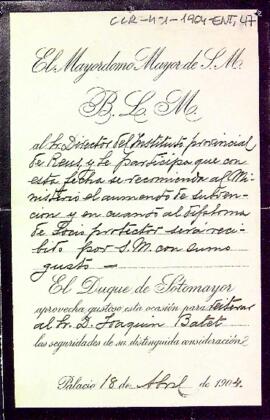 CCR-471-1904-ENT, 47
El Mayordomo Mayor de S. M.
B. L. M.
al Sr. Director del Instituto provincial
de Reus, y le participa que con
esta fecha se recomienda al Mi-
nisterio el aumento de subven-
cion y en cuanto al diploma
de Socio protector será reci-
bido por S. M. con sumo
gusto —
El Duque de Sotomayor
aprovecha gustoso esta ocasión para reiterar
al Sr. D. Joaquin Batet
las seguridades de su distinguida consideración
Palacio 18 de Abril de 1904.